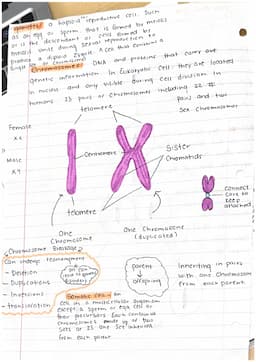 gamete: a haploid reproductive cell. Such
as an egg or sperm, that is formed by meiosis
or is the descendant of cells formed by
meiosis. Unite during sexual reproduction to
produce a diploid zygote. A cell that contains a
single set of chromosomes
Chromosomes: DNA and proteins that carry
genetic information. In Eukaryotic cell they are located
in nucleus and only visible during cell division in
humans 23 pair of chromosomes including 22
pairs and two
Sex chromosomes
telomere
Female
XX
Male
XY
Centromere
Sister
Chromatids
telomere
One
Chromosome
One Chromosome
(duplicated)
connect
keep
attached
Chromosome Breakage
Can undergo rearrangement
- Deletion
- Duplications
- Inversions
- translocation
parent
offspring
Inheriting in pairs
with one chromosome
from each parent.
Somatic cell
Cell in a multicellular organism
except a sperm or egg cell or
their precursors. Each contains
chromosomes made up of two
sets or 23. One set inherited
from each parent